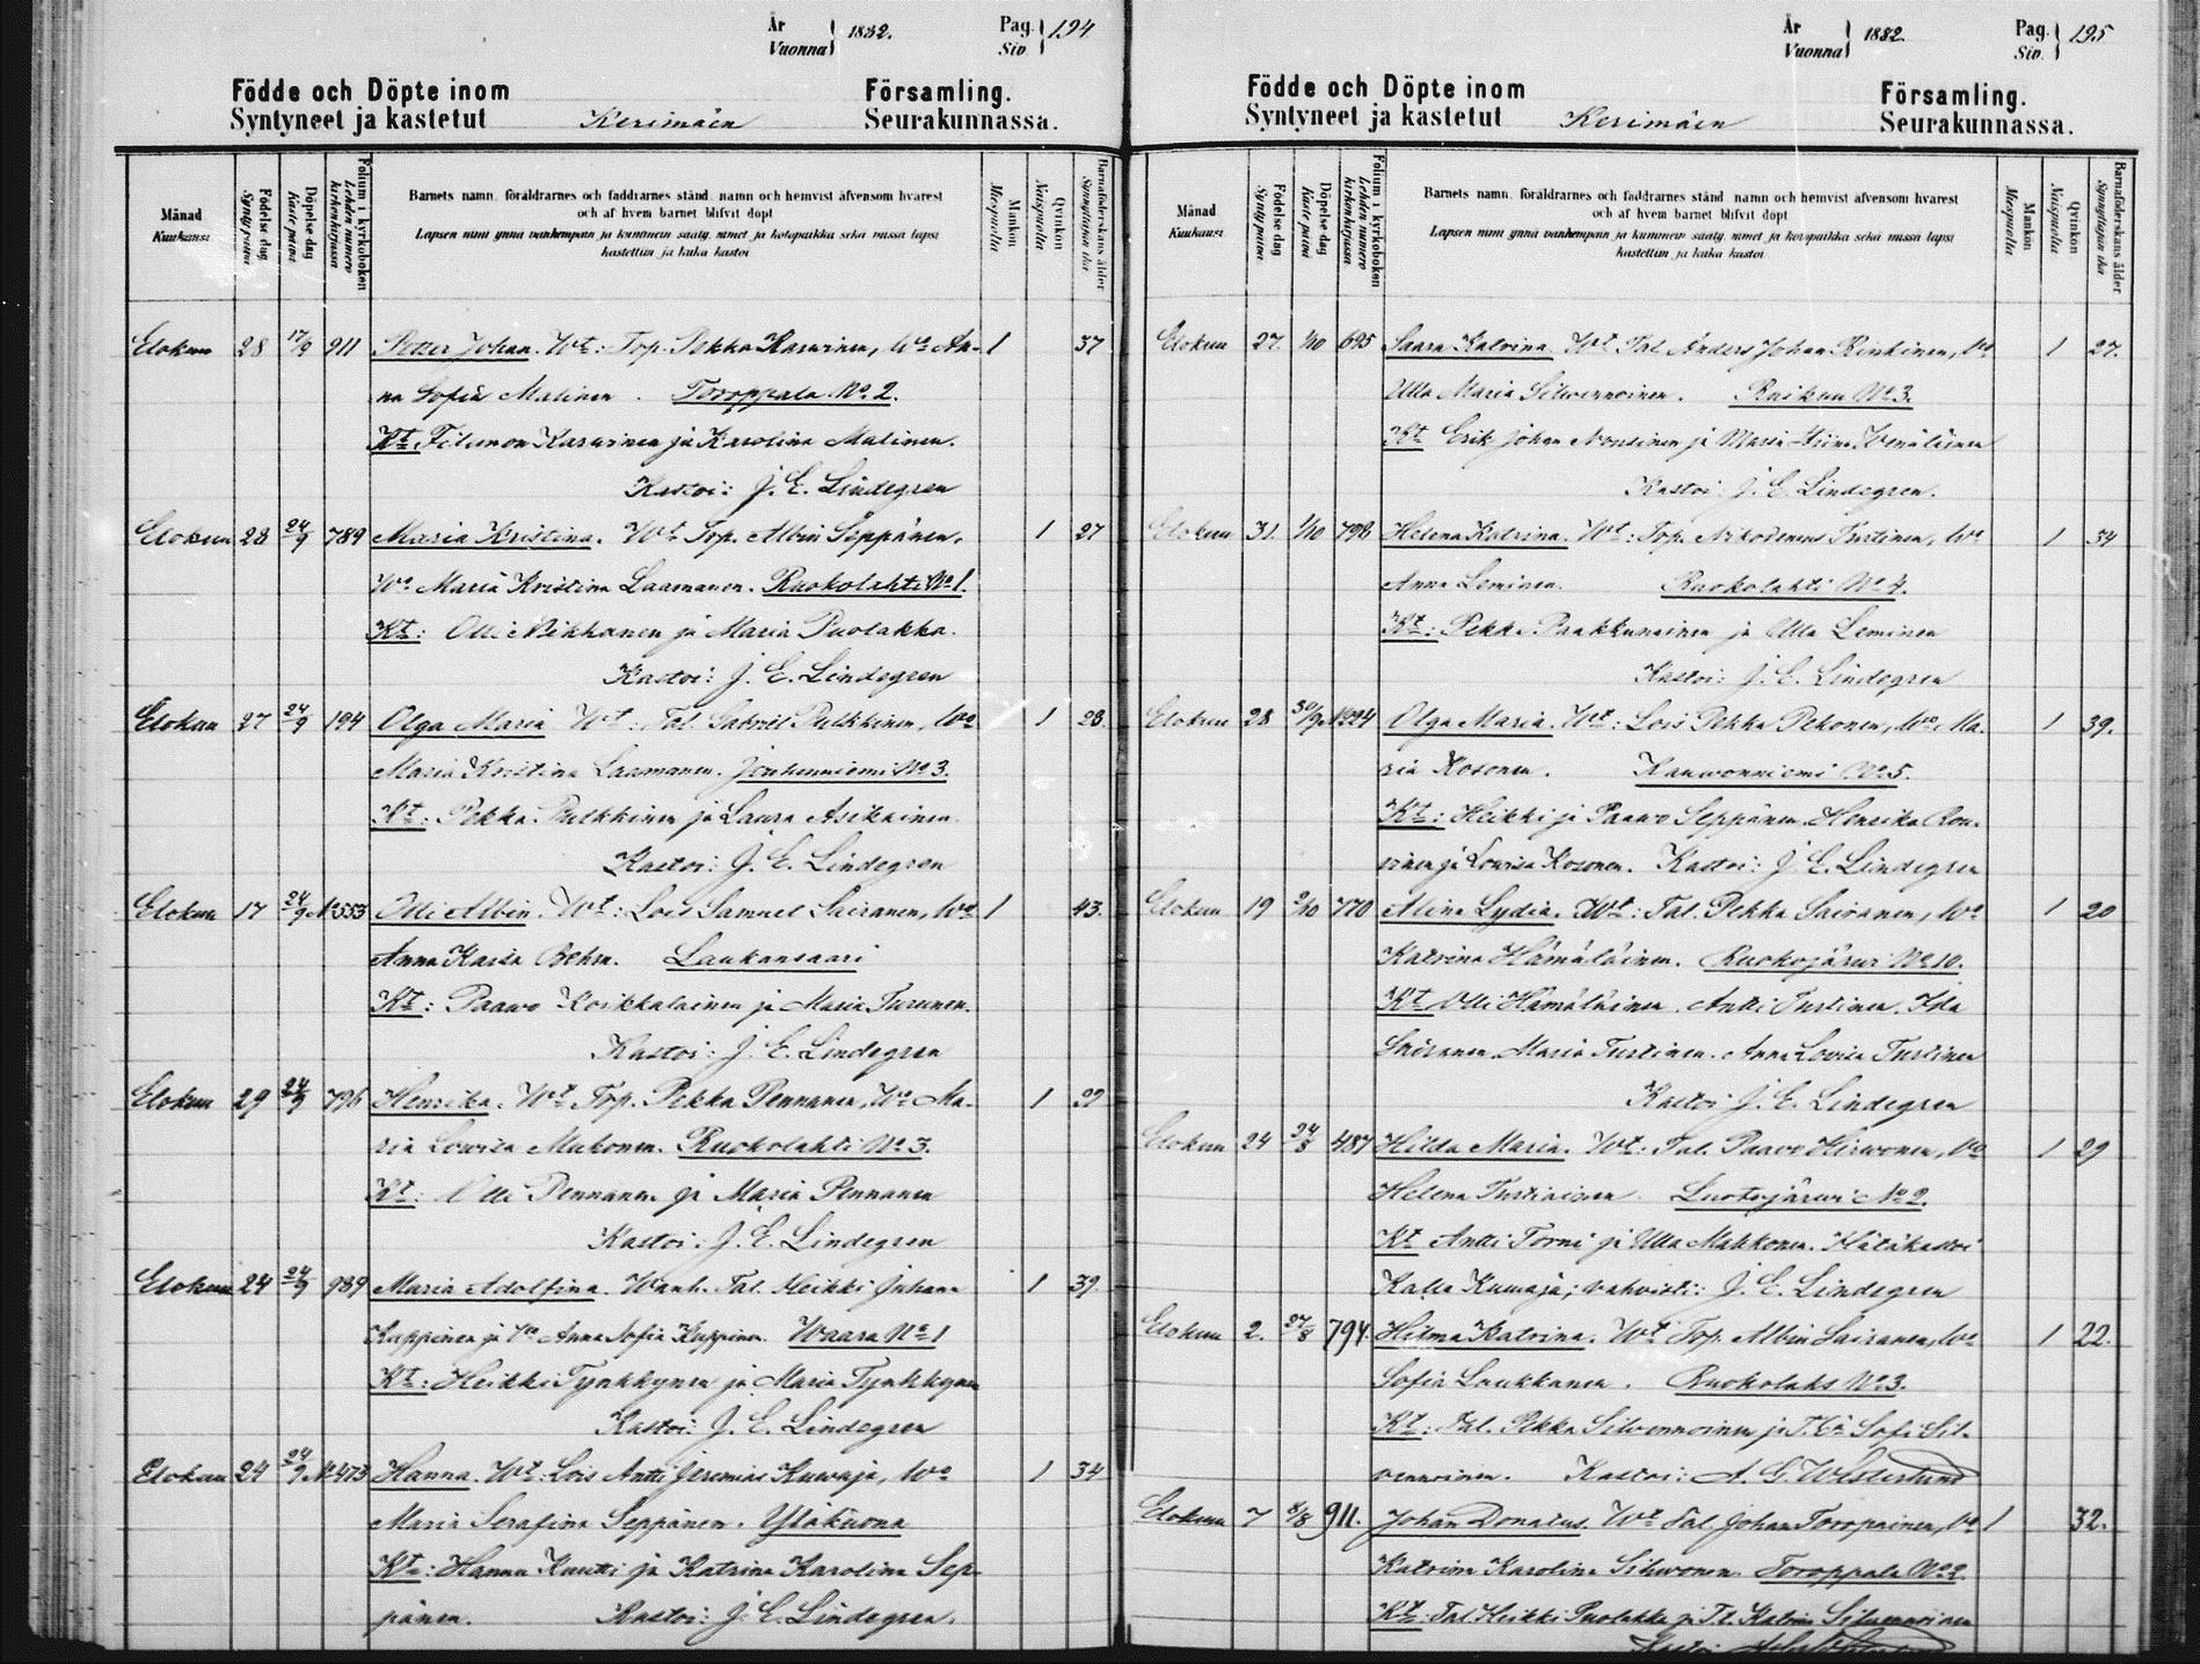 År
Vuonna 1882.
Pag.
Siv. 194
Födde och Döpte inom Församling.
Syntyneet ja kastetut Kerimäen Seurakunnassa.
Månad
Kuukausi
Födelse dag
Synty päivä
Döpelse dag
Kaste päivä
Folium i kyrkoboken
Lehden numero kirkonkirjassa
Barnets namn, föräldrarnes och faddrarnes stånd, namn och hemvist äfvensom hvarest
och af hvem barnet blifvit döpt
Lapsen nimi ynnä vanhempain ja kummein sääty, nimet ja kotopaikka sekä missä lapsi
kastettiin ja kuka kastoi
Mankön
Miespuolia
Qvinkön
Naispuolia
Barnaföderskans ålder
Synnyttäjän ikä
Elokun 28 17/9 911 Petter Johan. Wt: Top. Pekka Karwinen, Wo An- 1 37
na Sofia Malinen. Toroppala No 2.
Kt. Filemon Karwinen ja Karolina Malinen.
Kastoi: J. E. Lindegren
Elokun 28 24/9 789 Maria Kristina. Wt Top. Albin Seppänen, 1 27
Wo Maria Kristina Laamanen. Ruokolahti No 1.
Kt: Olli Mikkonen ja Maria Puolakka.
Kastoi: J. E. Lindegren
Elokun 27 24/9 194 Olga Maria Wt: Tal. Gabriel Pulkkinen, Wo 1 28.
Maria Kristina Laamanen. Jouhenniemi No 3.
Kt: Pekka Pulkkinen ja Laura Asikainen.
Kastoi: J. E. Lindegren
Elokun 17 24/9 N:553 Olli Albin. Wt: Lois Samuel Sairanen, Wo 1 43.
Anna Kaisa Behm. Laukansaari
Kt: Paawo Koikkalainen ja Maria Turunen.
Kastoi: J. E. Lindegren
Elokun 29 24/9 796 Henrika. Wt. Top. Pekka Pennanen, Wo Ma- 1 22
ria Lowisa Mukonen. Ruokolahti No 3.
Kt: Olli Pennanen ja Maria Pennanen
Kastoi: J. E. Lindegren
Elokun 24 24/9 989 Maria Adolfina. Wanh. Tal. Heikki Juhana 1 39.
Kuppinen ja Vo Anna Sofia Kuppinen. Waara No 1
Kt: Heikki Tynkkynen ja Maria Tynkkynen
Kastoi: J. E. Lindegren
Elokun 24 24/9 N:473 Hanna. Wt: Lois Antti Jeremias Kuwaja, Wo 1 34
Maria Serafina Seppänen. Yläkuona
Kt: Hannu Kuutti ja Katrina Karolina Sep-
pänen. Kastoi: J. E. Lindegren.
År
Vuonna 1882.
Pag.
Siv. 195
Födde och Döpte inom Församling.
Syntyneet ja kastetut Kerimäen Seurakunnassa.
Månad
Kuukausi
Födelse dag
Synty päivä
Döpelse dag
Kaste päivä
Folium i kyrkoboken
Lehden numero kirkonkirjassa
Barnets namn, föräldrarnes och faddrarnes stånd, namn och hemvist äfvensom hvarest
och af hvem barnet blifvit döpt
Lapsen nimi ynnä vanhempain ja kummein sääty, nimet ja kotopaikka sekä missä lapsi
kastettiin ja kuka kastoi
Mankön
Miespuolia
Qvinkön
Naispuolia
Barnaföderskans ålder
Synnyttäjän ikä
Elokun 27. 1/10 695 Saara Katrina. Wt Tal Anders Johan Rinkinen, Wo 1 27.
Ulla Maria Silwennoinen. Raikuu No 3.
Kt Erik Johan Nousinen ja Maria Stiina Wenäläinen
Kastoi: J. E. Lindegren.
Elokun 31. 1/10 798 Helena Katrina. Wt: Top. Nikodemus Turtinen, Wo 1 34
Anna Leminen. Ruokolahti No 4.
Kt: Pekka Paakkunainen ja Ulla Leminen
Kastoi: J. E. Lindegren
Elokun 28 30/9 N:224 Olga Maria. Wt: Lois Pekka Pekonen, Wo Ma- 1 39.
ria Kosonen. Kauwonniemi No 5.
Kt: Heikki ja Paawo Seppänen Henrika Rou-
ninen ja Lowisa Kosonen. Kastoi: J. E. Lindegren
Elokun 19 2/10 770 Alina Lydia. Wt: Tal. Pekka Sairanen, Wo 1 20
Katrina Hämäläinen. Ruokojärwi No 10.
Kt Olli Hämäläinen. Antti Turtinen. Ida
Sairanen. Maria Turtinen. Anna Lowisa Turtinen
Kastoi J. E. Lindegren
Elokun 24 24/8 487 Hilda Maria. Wt: Tal. Paavo Hirwonen, Wo 1 29
Helena Turtiainen. Luotojärwi No 2.
Kt Antti Torni ja Ulla Makkonen. Hätäkastoi
Kalle Kuwaja; vahvisti: J. E. Lindegren
Elokun 2. 27/8 794. Hilma Katrina. Wt Top. Albin Sairanen, Wo 1 22.
Sofia Laukkanen. Ruokolaks No 3.
Kt: Tal. Pekka Silwennoinen ja T. Sofi Sil-
vennoinen. Kastoi: A. G. Westerlund
Elokun 7 8/8 911. Johan Donatus. Wt Tal. Johan Toropainen, Wo 1 32.
Katrina Karolina Silwonen. Toroppala No 2.
Kt: Tal. Heikki Puolakka ja T.t. Katrina Silwennoinen
Kastoi